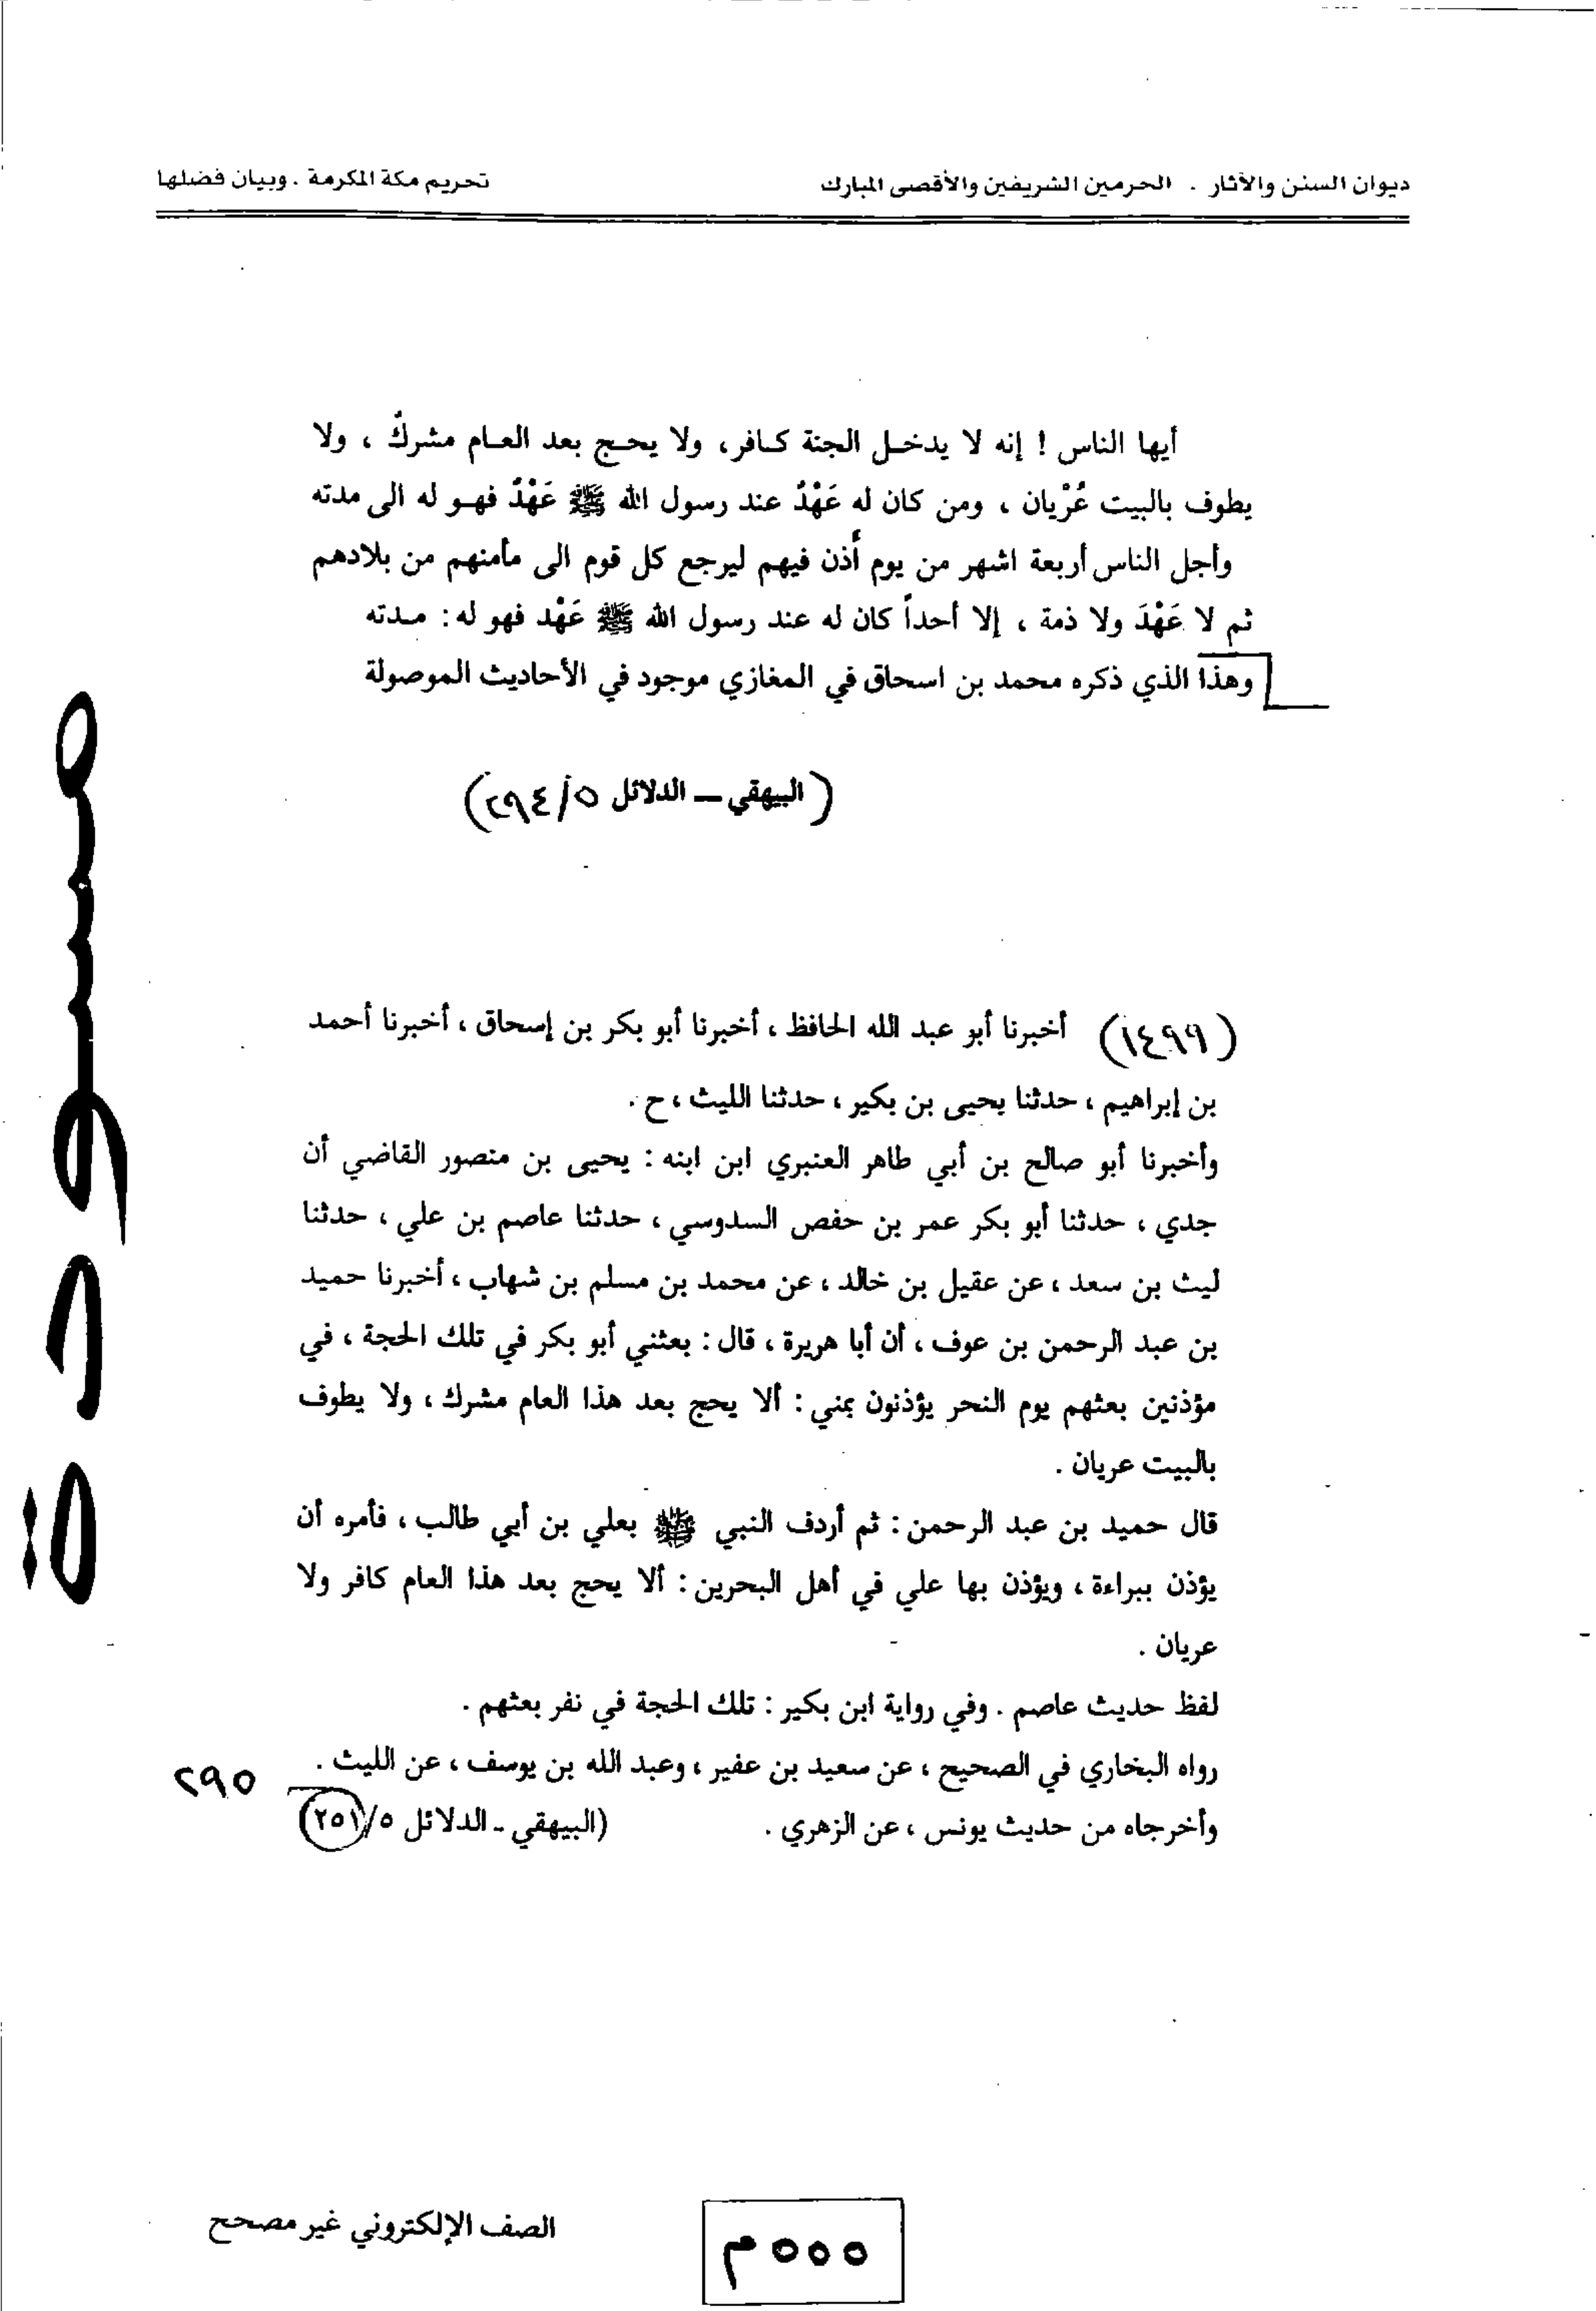 ديوان السنن والآثار . الحرمين الشريفين والأقصى المبارك
تحريم مكة المكرمة . وبيان فضلها
أيها الناس ! إنه لا يدخل الجنة كافر، ولا يحج بعد العام مشركٌ ، ولا
يطوف بالبيت عُرْيان ، ومن كان له عَهْدٌ عند رسول الله ﷺ عَهْدٌ فهو له الى مدته
وأجل الناس أربعة اشهر من يوم أُذن فيهم ليرجع كل قوم الى مأمنهم من بلادهم
ثم لا عَهْدَ ولا ذمة ، إلا أحداً كان له عند رسول الله ﷺ عَهْد فهو له : مدته
وهذا الذي ذكره محمد بن اسحاق في المغازي موجود في الأحاديث الموصولة
(البيهقي – الدلائل ٥/٢٩٤)
(١٤٩٩) أخبرنا أبو عبد الله الحافظ ، أخبرنا أبو بكر بن إسحاق ، أخبرنا أحمد
بن إبراهيم ، حدثنا يحيى بن بكير ، حدثنا الليث ، ح .
وأخبرنا أبو صالح بن أبي طاهر العنبري ابن ابنه : يحيى بن منصور القاضي أن
جدي ، حدثنا أبو بكر عمر بن حفص السدوسي ، حدثنا عاصم بن علي ، حدثنا
ليث بن سعد ، عن عقيل بن خالد ، عن محمد بن مسلم بن شهاب ، أخبرنا حميد
بن عبد الرحمن بن عوف ، أن أبا هريرة ، قال : بعثني أبو بكر في تلك الحجة ، في
مؤذنين بعثهم يوم النحر يؤذنون بمني : ألا يحج بعد هذا العام مشرك ، ولا يطوف
بالبيت عريان .
قال حميد بن عبد الرحمن : ثم أردف النبي ﷺ بعلي بن أبي طالب ، فأمره أن
يؤذن ببراءة ، ويؤذن بها علي في أهل البحرين : ألا يحج بعد هذا العام كافر ولا
عريان .
لفظ حديث عاصم . وفي رواية ابن بكير : تلك الحجة في نفر بعثهم .
رواه البخاري في الصحيح ، عن سعيد بن عفير ، وعبد الله بن يوسف ، عن الليث .
٢٩٥
وأخرجاه من حديث يونس ، عن الزهري . (البيهقي - الدلائل ٥/٢٥١)
مسودة
٥٥٥م
الصف الإلكتروني غير مصحح